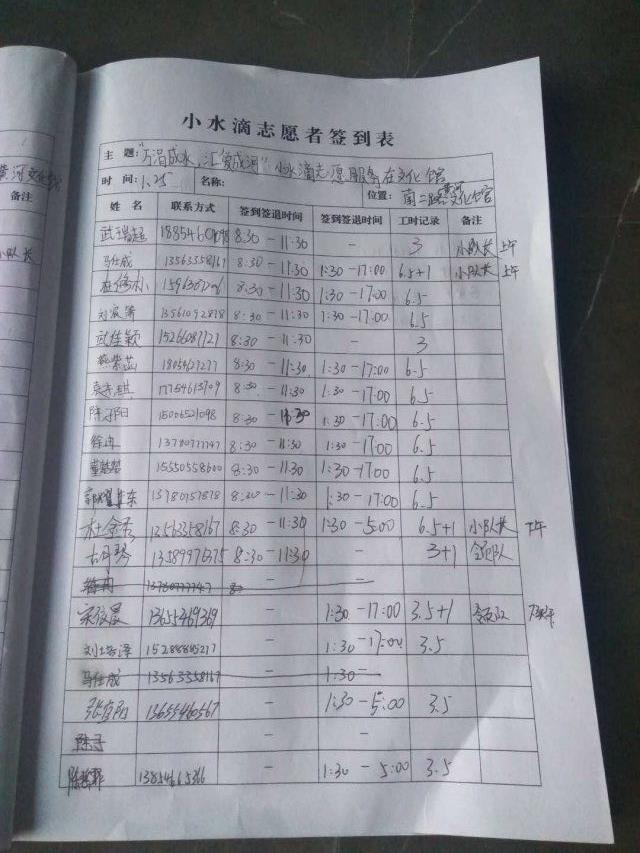 小水滴志愿者签到表
主 题: "万涓成水,汇聚成河" 小水滴志愿服务在文化馆
时 间: 1.25 名称: 位置: 南二路黄河文化馆
姓 名 联系方式 签到签退时间 签到签退时间 工时记录 备注
武瑞超 8:30 - 11:30 - 3 小队长 上午
马仕成 13563558167 8:30 - 11:30 1:30 - 17:00 6.5+1 小队长 上午
8:30 - 11:30 1:30 - 17:00 6.5
13561092878 8:30 - 11:30 1:30 - 17:00 6.5
武佳颖 15266087721 8:30 - 11:30 - 3
18054627277 8:30 - 11:30 1:30 - 17:00 6.5
17754613909 8:30 - 11:30 1:30 - 17:00 6.5
陈子阳 15006521098 8:30 - 11:30 1:30 - 17:00 6.5
徐冉 13780777747 8:30 - 11:30 1:30 - 17:00 6.5
15550558600 8:30 - 11:30 1:30 - 17:00 6.5
13780757878 8:30 - 11:30 1:30 - 17:00 6.5
8:30 - 11:30 1:30 - 5:00 6.5+1 小队长 下午
13589976375 8:30 - 11:30 - 3+1 领队
13780777747 8:30 - -
13655469369 - 1:30 - 17:00 3.5+1 领队 下午
15288885217 - 1:30 - 17:00 3.5
马仕成 13563358167 - 1:30 -
张宜阳 13655460567 - 1:30 - 5:00 3.5
陈子 - -
13854665366 - 1:30 - 5:00 3.5
黄河文化馆
备注
小队长